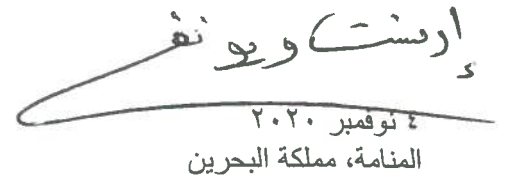 إرنست ويونغ
٤ نوفمبر ٢٠٢٠
المنامة، مملكة البحرين